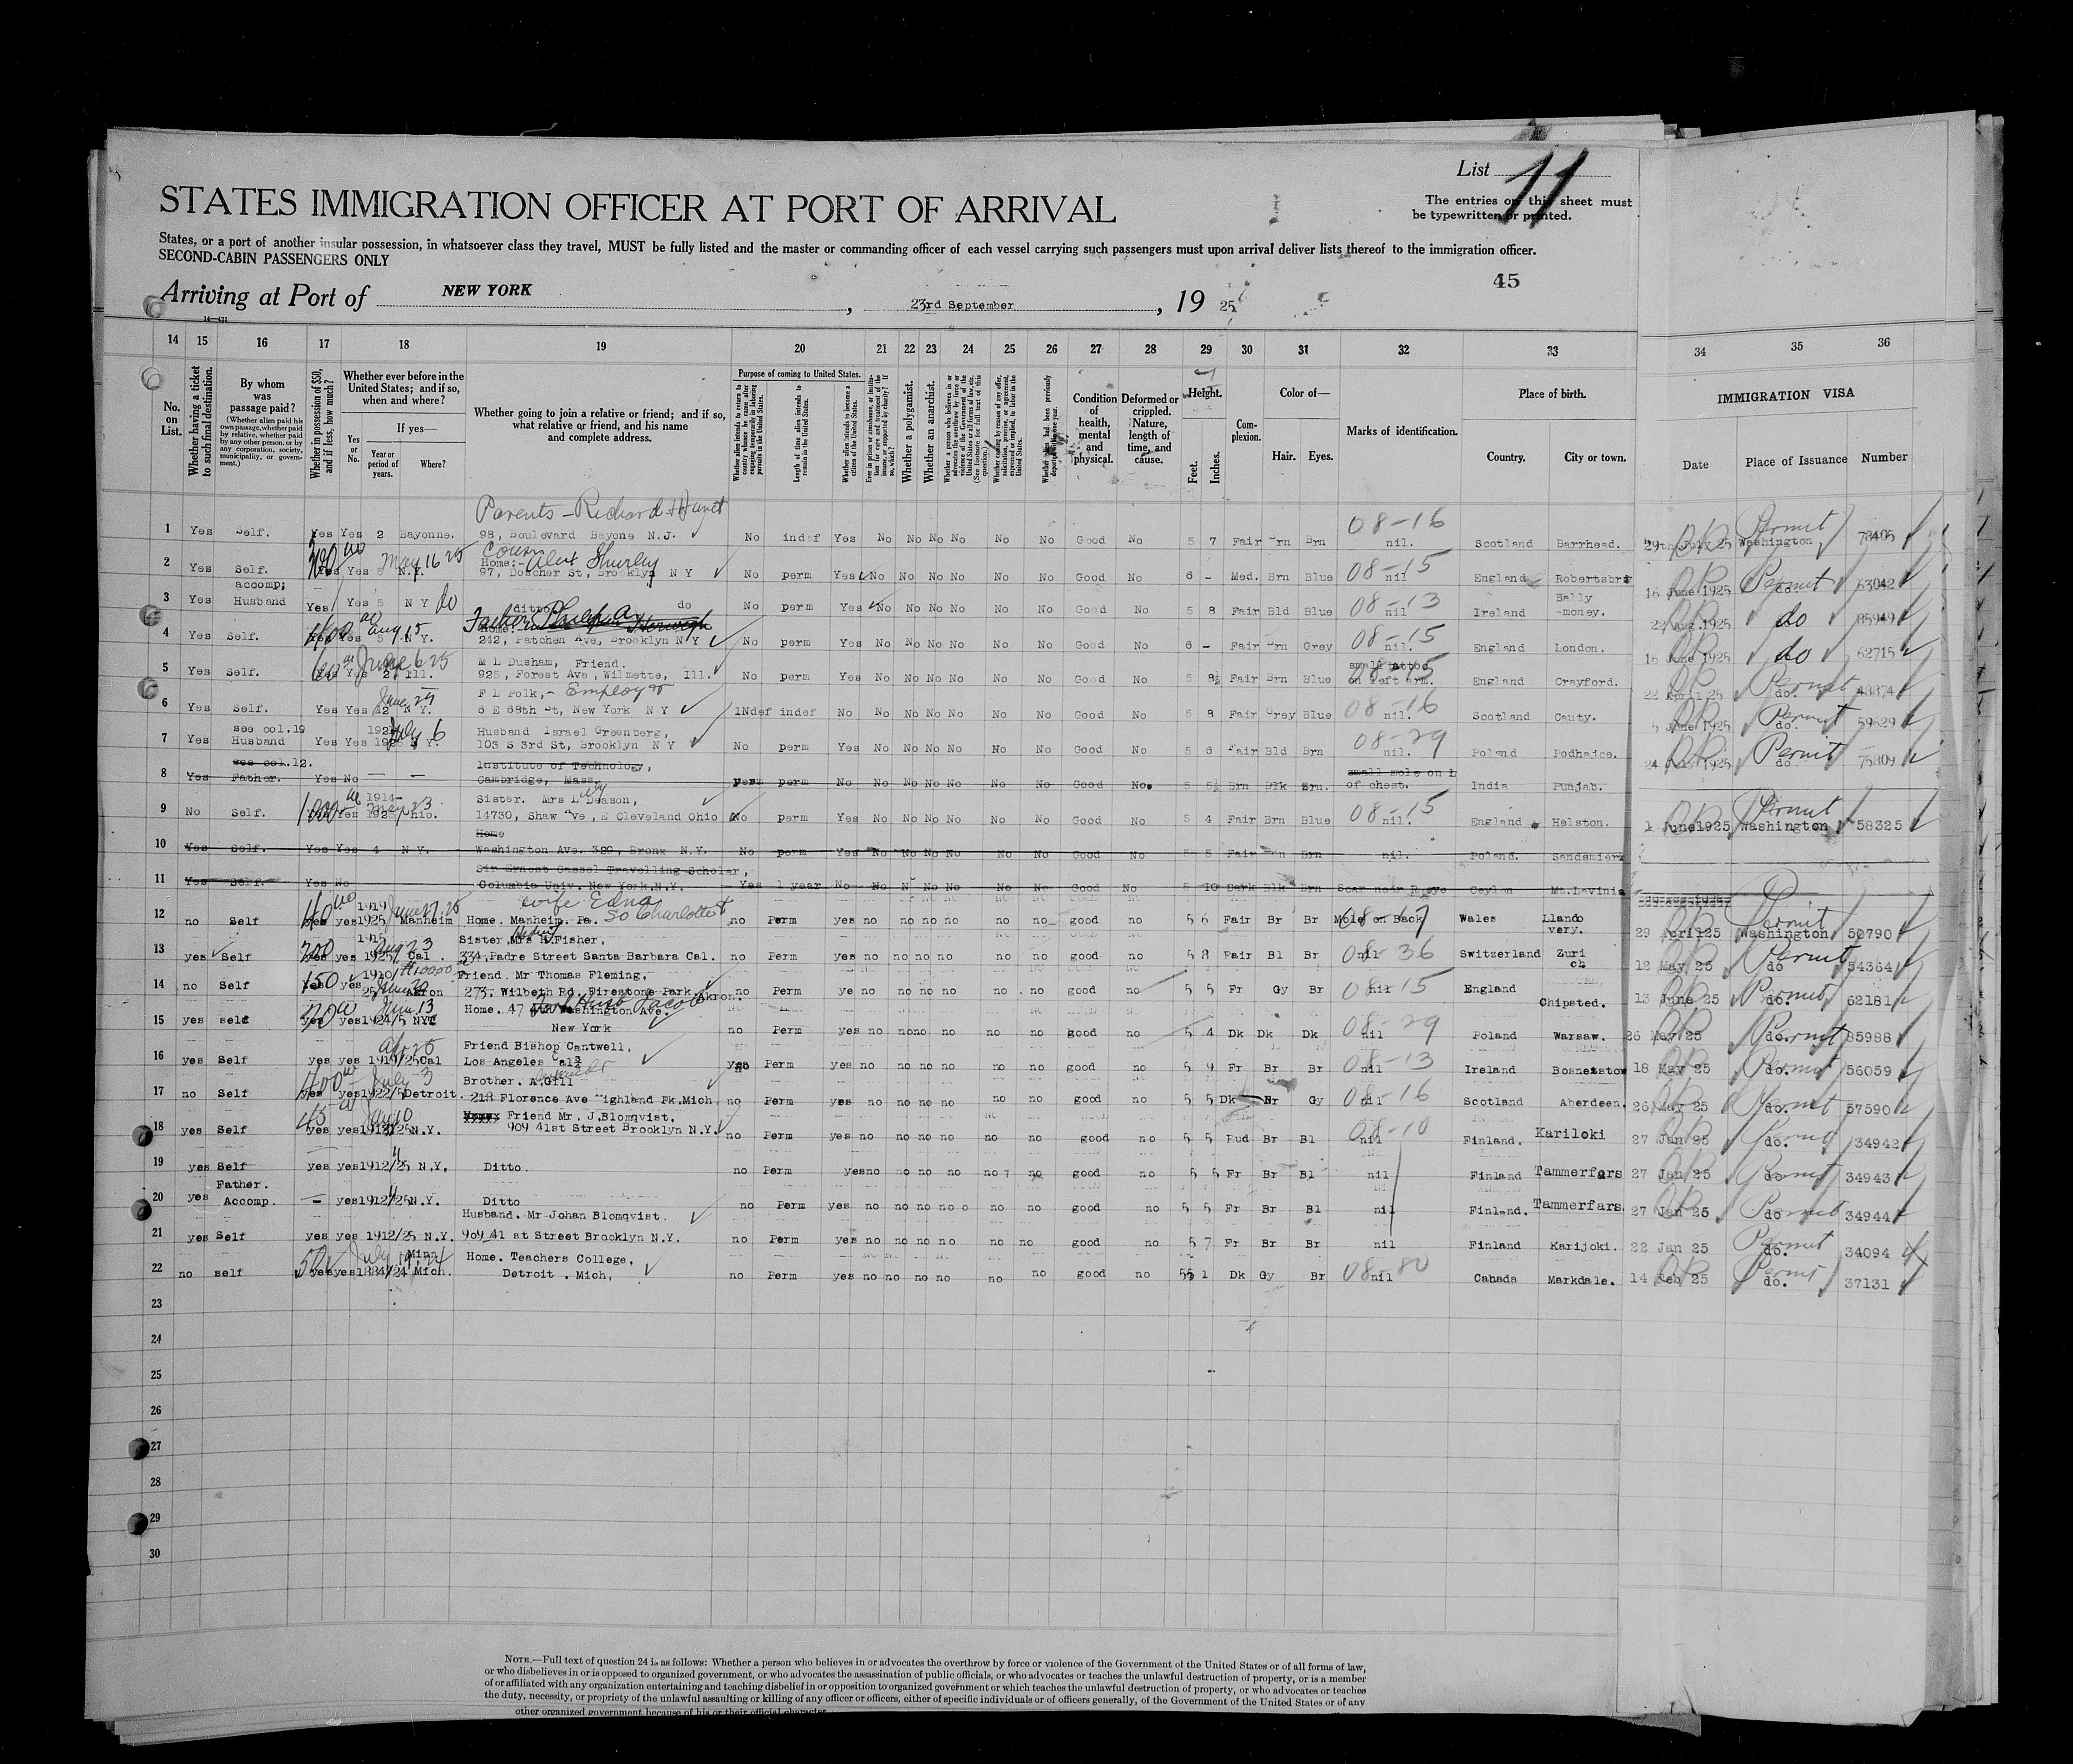 List 11
STATES IMMIGRATION OFFICER AT PORT OF ARRIVAL
The entries on this sheet must
be typewritten or printed.
States, or a port of another insular possession, in whatsoever class they travel, MUST be fully listed and the master or commanding officer of each vessel carrying such passengers must upon arrival deliver lists thereof to the immigration officer.
SECOND-CABIN PASSENGERS ONLY
45
Arriving at Port of NEW YORK, 23rd September, 19 25
14 15 16 17 18 19 20 21 22 23 24 25 26 27 28 29 30 31 32 33 34 35 36
No. on List.
Whether having a ticket to such final destination.
By whom was passage paid?
(Whether alien paid his own passage, whether paid by relative, whether paid by any other person, or by any corporation, society, municipality, or government.)
Whether in possession of $50, and if less, how much?
Whether ever before in the United States; and if so, when and where?
Yes or No.
If yes—
Year or period of years.
Where?
Whether going to join a relative or friend; and if so, what relative or friend, and his name and complete address.
Purpose of coming to United States.
Length of time alien intends to remain in the United States.
Whether alien intends to become a citizen of the United States.
Whether a polygamist.
Whether an anarchist.
Condition of health, mental and physical.
Deformed or crippled. Nature, length of time, and cause.
Height.
Feet. Inches.
Complexion.
Color of—
Hair. Eyes.
Marks of identification.
Place of birth.
Country. City or town.
IMMIGRATION VISA
Date Place of Issuance Number
Parents - Richard
1 Yes Self. Yes Yes 2 Bayonne. 98, Boulevard Bayone N.J. No indef Yes No No No No No No Good No 5 7 Fair Brn Brn 08-16 nil. Scotland Barrhead. 29th July 25 Permit Washington 78405
Home:-
2 Yes Self. Yes 5 N.Y. May 16 25 97, Doscher St, Brooklyn N Y No perm Yes No No No No No No Good No 6 - Med. Brn Blue 08-15 nil England 16 June 1925 Permit do. 63042
accomp;
3 Yes Husband Yes Yes 5 N Y do ditto do No perm Yes No No No No No No Good No 5 8 Fair Bld Blue 08-13 nil Ireland Bally-money. 22 Aug. 1925 do 85949
Father
4 Yes Self. Yes 5 N Y. Aug 15 242, Patchen Ave, Brooklyn N Y No perm Yes No No No No No No Good No 6 - Fair Brn Grey 08-15 nil. England London. 16 June 1925 do 62715
M L Dusham, Friend.
5 Yes Self. Yes 2 Ill. June 6 25 925, Forest Ave, Wilmette, Ill. No perm Yes No No No No No No Good No 5 8½ Fair Brn Blue small tattoo on left arm. England Crayford. 22 April 25 Permit do. 48874
F L Polk,- Employer
6 Yes Self. Yes Yes 2 N Y. June 25 6 E 68th St, New York N Y INdef indef No No No No No No No Good No 5 8 Fair Grey Blue 08-16 nil. Scotland Cauty. 5 June 1925 Permit do. 59629
see col.19 Husband Israel Greenberg,
7 Yes Husband Yes Yes N Y. July 6 103 S 3rd St, Brooklyn N Y No perm Yes No No No No No No Good No 5 6 Fair Bld Brn 08-29 nil. Poland Podhajce. 24 July 1925 Permit do. 75809
see col.12. Institute of Technology,
8 Yes Father. Yes No — — Cambridge, Mass. perm No No No No No No No Good No. 5 5½ Brn Blk Brn. small mole on L of chest. India Punjab.
1914- Sister. Mrs L Deason,
9 No Self. Yes 1925 Ohio. May 23 14730, Shaw Ave, E Cleveland Ohio No perm Yes No No No No No No Good No 5 4 Fair Brn Blue 08-15 nil. England Helston. 1 June 1925 Permit Washington 58325
Home
10 Yes Self. Yes Yes 4 N Y. Washington Ave. 320, Bronx N.Y. No perm Yes No No No No No No Good No 5 5 Fair Brn Brn nil. Poland. Sandsmierz
Sir Ernest Cassel Travelling Scholar,
11 Yes Self. Yes No Columbia Univ. New York.N.Y. Yes 1 year No No No No No No No Good No 5 10 Dark Blk Brn Scar near R eye Ceylon Mt.Lavinia
wife Edna
12 no Self yes 1919 1925 Manheim June 27.25 Home. Manheim. Pa. So Charlotte St no Perm yes no no no no no no good no 5 6 Fair Br Br Mole on Back 08-17 Wales Llando very. 29 April 25 Permit Washington 50790
Sister, Mrs H.Fisher,
13 yes Self 200 yes 1915 1925 Cal. Aug 23 334, Padre Street Santa Barbara Cal. no Perm yes no no no no no no good no 5 8 Fair Bl Br nil 08-36 Switzerland Zuri ch 12 May 25 Permit do 54364
Friend. Mr Thomas Fleming,
14 no Self 150 yes 1910/25 Akron 273. Wilbeth Rd. Firestone Park. Akron. no Perm ye no no no no no no good no 5 5 Fr Gy Br 08-15 nil England Chipsted. 13 June 25 Permit do. 62181
15 yes self yes 1924/5 NYC June 13 Home. 47 Washington Ave. New York no Perm yes no no no no no no good no 5 4 Dk Dk Dk 08-29 nil Poland Warsaw. 26 May 25 Permit do. 85988
Friend Bishop Cantwell,
16 yes Self yes yes 1919/25 Cal Los Angeles Cal Perm yes no no no no no no good no 5 9 Fr Br Br 08-13 nil Ireland 18 May 25 Permit do. 56059
Brother. A.Gill
17 no Self 400 yes 1922/5 Detroit. July 3 218 Florence Ave Highland Pk.Mich. no Perm yes no no no no no no good no 5 5 Dk Br Gy 08-16 nil Scotland Aberdeen. 26 May 25 Permit do. 57590
Friend Mr. J.Blomqvist,
18 yes Self 45 yes 1912/25 N.Y. 909 41st Street Brooklyn N.Y. no Perm yes no no no no no no good no 5 5 Rud Br Bl 08-10 nil Finland. Kariloki 27 Jan 25 Permit do. 34942
19 yes Self yes yes 1912/25 N.Y. Ditto. no Perm yes no no no no no no good no 5 5 Fr Br Bl nil Finland Tammerfars 27 Jan 25 Permit do 34943
Father.
20 yes Accomp. — yes 1912/25 N.Y. Ditto no Perm yes no no no no no no good no 5 5 Fr Br Bl nil Finland. Tammerfars. 27 Jan 25 Permit do 34944
Husband. Mr Johan Blomqvist.
21 yes Self yes yes 1912/25 N.Y. 909 41 st Street Brooklyn N.Y. no Perm yes no no no no no no good no 5 7 Fr Br Br nil Finland Karijoki. 22 Jan 25 Permit do. 34094
Minn Home. Teachers College,
22 no self 50 yes yes 1884/24 Mich. Detroit . Mich, no Perm yes no no no no no no good no 5 1 Dk Gy Br 08-80 nil Cahada Markdale. 14 Feb 25 Permit do. 37131
23
24
25
26
27
28
29
30
NOTE.—Full text of question 24 is as follows: Whether a person who believes in or advocates the overthrow by force or violence of the Government of the United States or of all forms of law,
or who disbelieves in or is opposed to organized government, or who advocates the assassination of public officials, or who advocates or teaches the unlawful destruction of property, or is a member
of or affiliated with any organization entertaining and teaching disbelief in or opposition to organized government or which teaches the unlawful destruction of property, or who advocates or teaches
the duty, necessity, or propriety of the unlawful assaulting or killing of any officer or officers, either of specific individuals or of officers generally, of the Government of the United States or of any
other organized government because of his or their official character